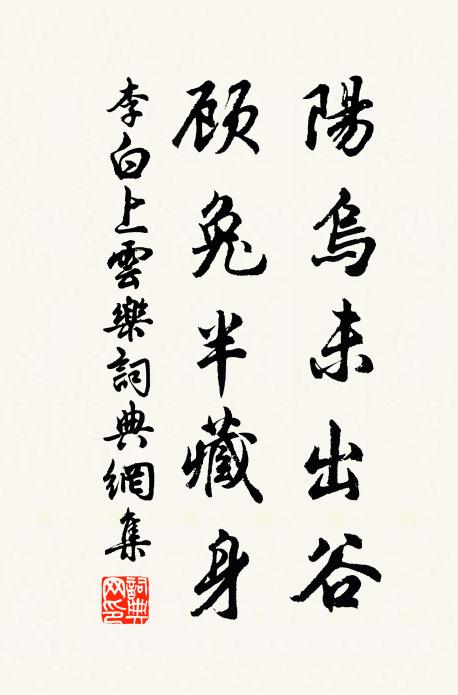 陽烏未出谷
顧兔半藏身
李白上雲樂詞典網集
詞典網印